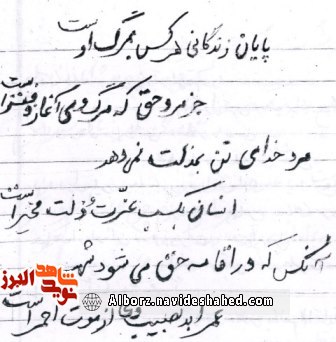 پایان زندگانی هر کس بمرگ اوست
جز مرد حق که مرگ وی آغاز دفتر است
مرد خدای تن بمذلت نمی دهد
انسان بکسب عزت و ذلت مخیر است
آنکس که در اقامه حق می شود شهید
عمر ابد نصیب وی از موت احمر است
شاهد
نوید
البرز
Alborz.navideshahed.com